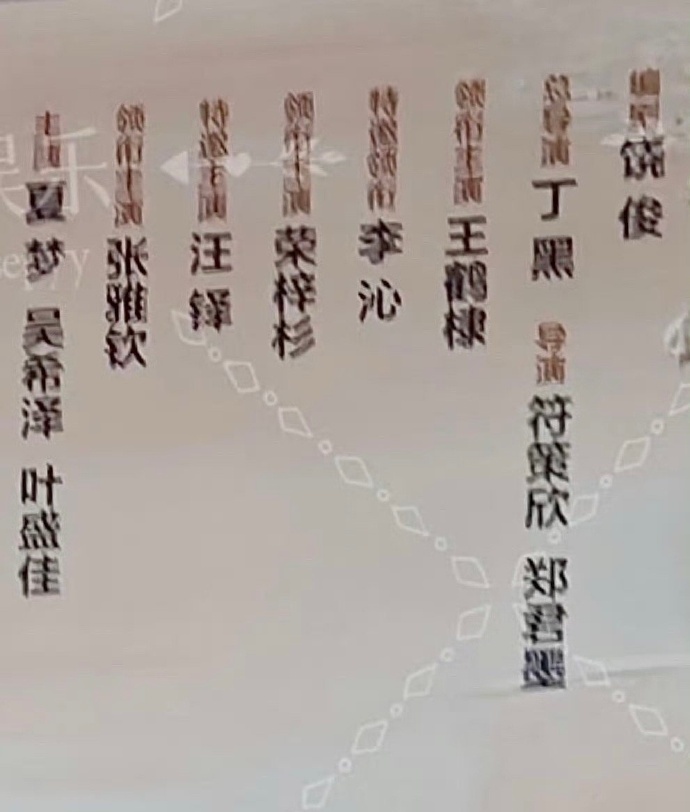 饶俊
总导演
丁黑
导演
符策欣 郑君墨
领衔主演
王鹤棣
特邀领衔
李沁
领衔主演
荣梓杉
特邀主演
汪铎
领衔主演
张雅钦
主演
夏梦 吴希泽 叶盛佳
娱乐